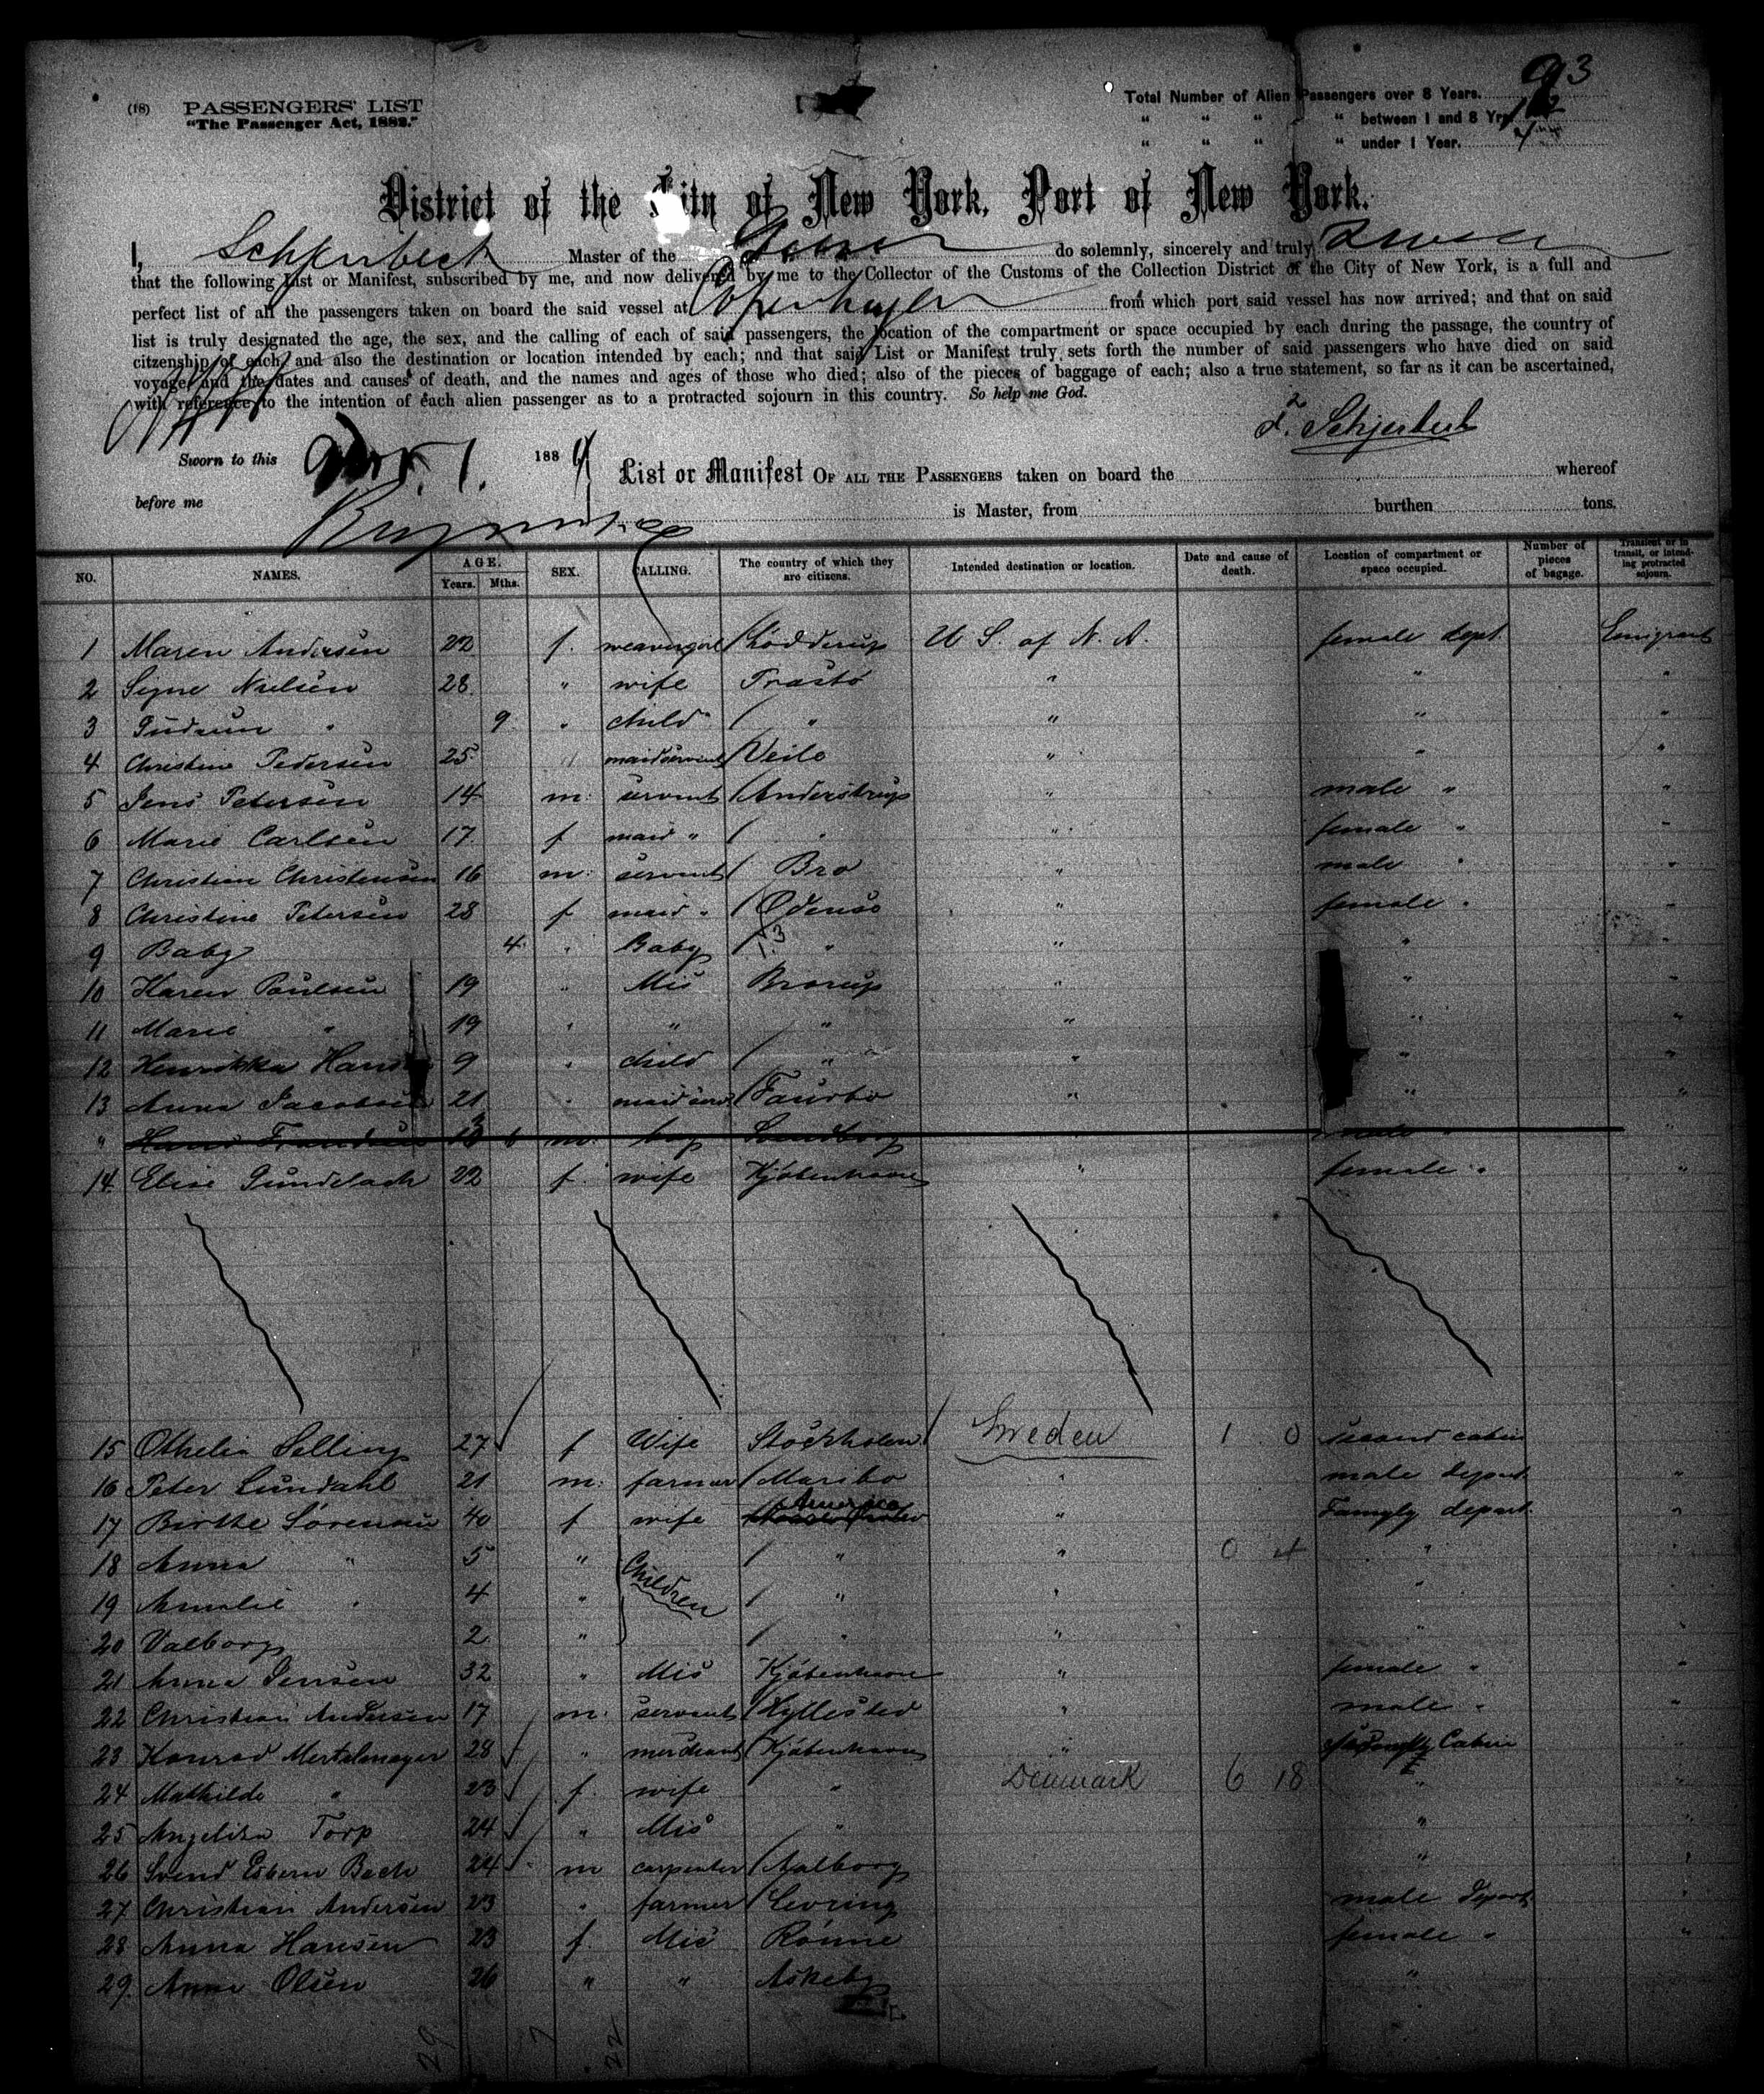 93
(18) PASSENGERS' LIST
"The Passenger Act, 1882."
Total Number of Alien Passengers over 8 Years.
" " " " between 1 and 8 Yrs.
" " " " under 1 Year.
District of the City of New York, Port of New York.
I, Schjerbeck Master of the do solemnly, sincerely and truly swear
that the following List or Manifest, subscribed by me, and now delivered by me to the Collector of the Customs of the Collection District of the City of New York, is a full and
perfect list of all the passengers taken on board the said vessel at Copenhagen from which port said vessel has now arrived; and that on said
list is truly designated the age, the sex, and the calling of each of said passengers, the location of the compartment or space occupied by each during the passage, the country of
citzenship of each, and also the destination or location intended by each; and that said List or Manifest truly sets forth the number of said passengers who have died on said
voyage, and the dates and causes of death, and the names and ages of those who died; also of the pieces of baggage of each; also a true statement, so far as it can be ascertained,
with reference to the intention of each alien passenger as to a protracted sojourn in this country. So help me God.
Schjerbeck
Sworn to this 1. 188
List or Manifest OF ALL THE PASSENGERS taken on board the whereof
before me
is Master, from burthen tons.
NO. NAMES. AGE. Years. Mths. SEX. CALLING. The country of which they are citizens. Intended destination or location. Date and cause of death. Location of compartment or space occupied. Number of pieces of bagage. Transient or in transit, or intending protracted sojourn.
1 Maren Andersen 22 f. weavergirl Lödderup U S. of N. A. female dept. Emigrant
2 Signe Nielsen 28 " wife Prästö " " "
3 Gudrun " 9 " child " " " "
4 Christine Pedersen 25 " maidservent Veile " " "
5 Jens Petersen 14 m. servent Anderstrup " male " "
6 Marie Carlsen 17 f maid " " " female " "
7 Christian Christensen 16 m. servent Bro " male " "
8 Christine Petersen 28 f maid " Odense " female " "
9 Baby 4 " Baby " " " "
10 Karen Poulsen 19 " Mis Brorup " " "
11 Marie " 19 " " " " " "
12 Henrikka 9 " child " " " "
13 Anna Jacobsen 21 " maid serv Faurbo " " "
" Hans Frandsen m. boy Svendborg male " "
14 Elise Gundelach 22 f. wife Kjöbenhavn " female " "
15 Othelia Selling 27 f Wife Stockholm Sweden 1 0 second cabin
16 Peter Lundahl 21 m. farmer Maribo " male depart. "
17 Birthe Sörensen 40 f wife America " Famyly depart. "
18 Anna " 5 " Children " " 0 4 "
19 Amalie " 4 " " " "
20 Valborg 2 " " " "
21 Anna Jensen 32 " Mis Kjöbenhavn " female " "
22 Christian Andersen 17 m. servent Hyllested " male " "
23 Konrad Mertelmeyer 28 " merchant Kjöbenhavn " Cabin
24 Mathilde " 23 f. wife " Denmark 6 18 " "
25 Angelika Torp 24 " Mis " " "
26 Svend Esbern Bech 24 m carpenter Aalborg " "
27 Christian Andersen 23 " farmer Levring male depart.
28 Anna Hansen 23 f. Mis Rönne female " "
29. Anna Olsen 26 " " Askeby "
29 7 22